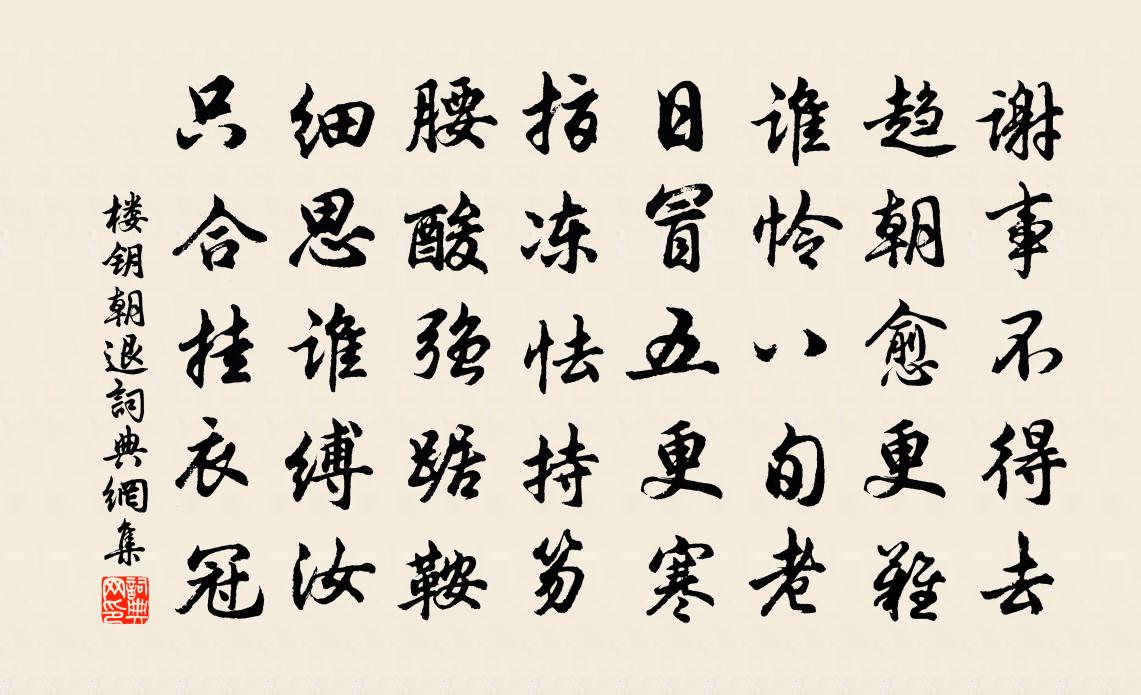 谢事不得去
趋朝愈更难
谁怜八旬老
日冒五更寒
指冻怯持笏
腰酸强踞鞍
细思谁缚汝
只合挂衣冠
楼钥朝退詞典網集
詞典网印